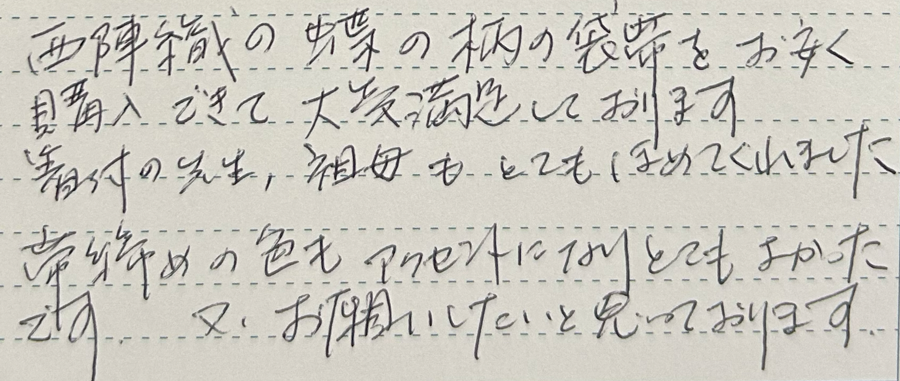 西陣織の蝶の柄の袋帯をお安く
購入できて大変満足しております
着付の先生,祖母もとてもほめてくれました
帯締めの色もアクセントになりとてもよかった
です. 又、お願いしたいと思っております.